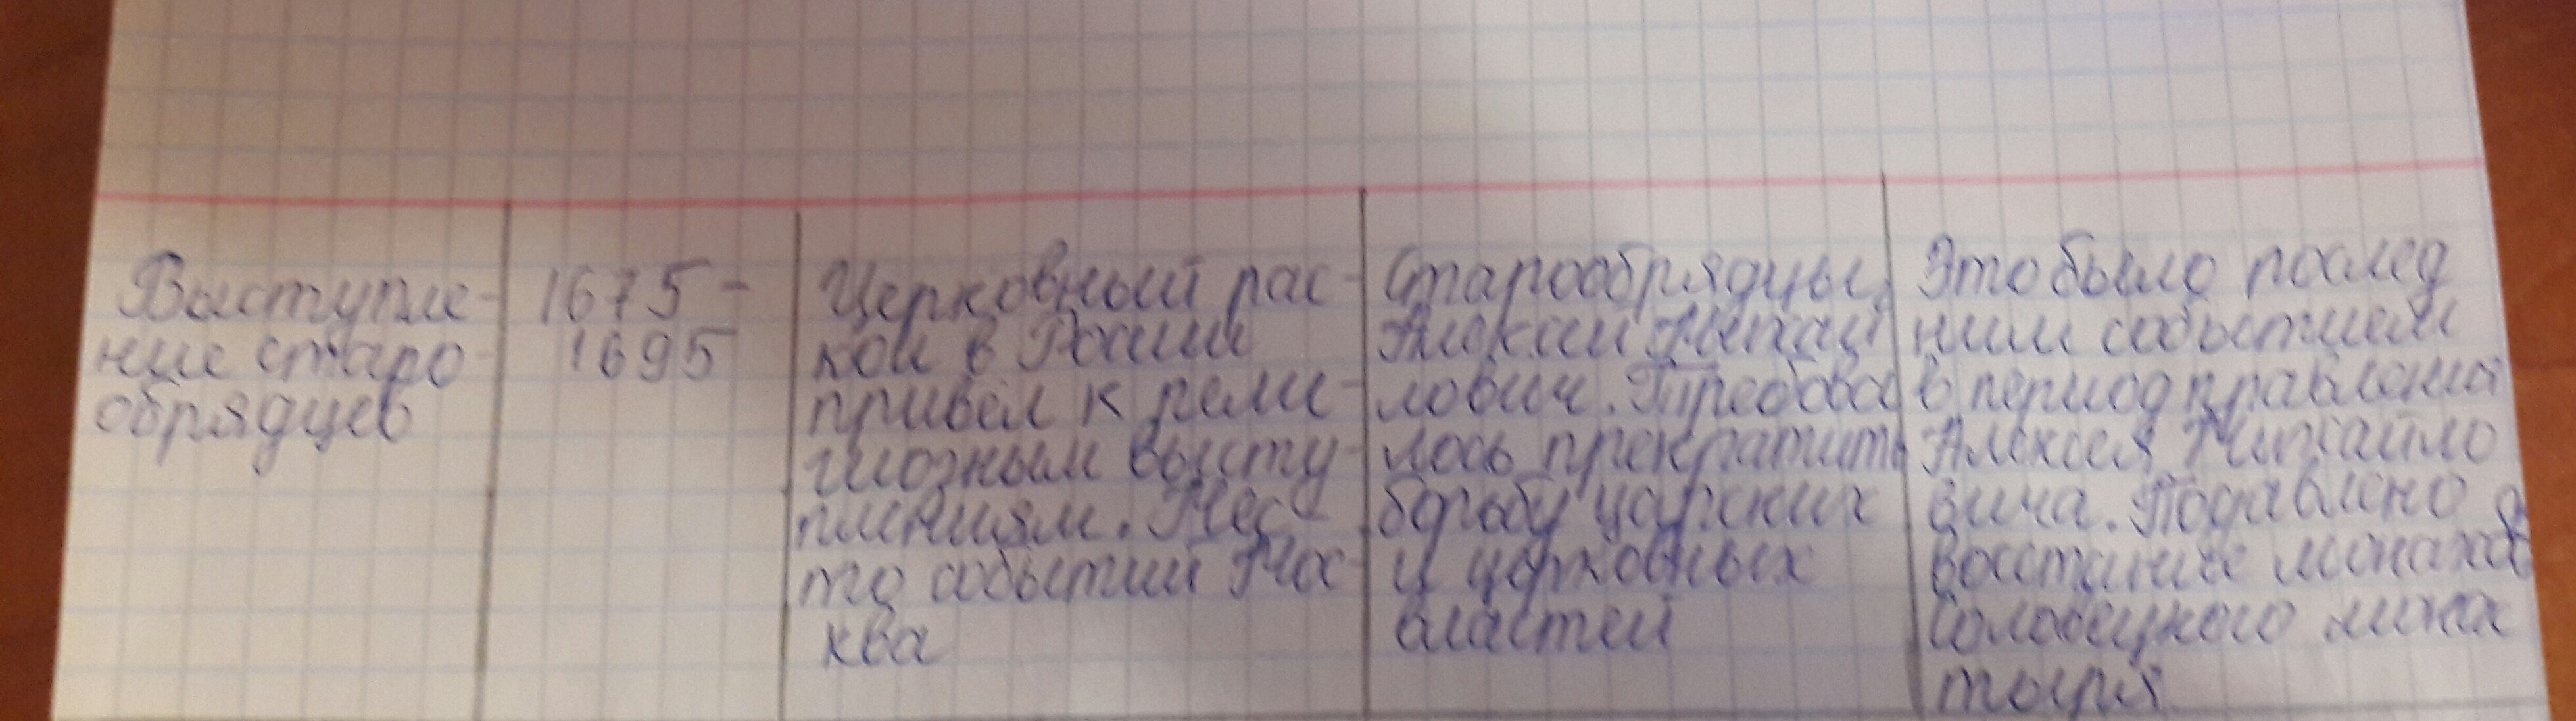 Выступле-
ние старо-
обрядцев
1675 -
1695
Церковный рас-
кол в России
привёл к рели-
гиозным высту-
плениям. Мес-
то событий Мос-
ква
Старообрядцы,
Алексей Михай
лович. Требова
лось прекратить
борьбу царских
и церковных
властей
Это было послед
ним событием
в период правления
Алексея Михайло
вича. Подавлено
восстание монахов
Соловецкого монас
тыря.